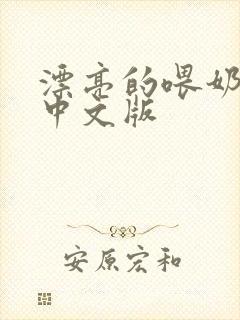 漂亮的喂奶
中文版
安原宏和